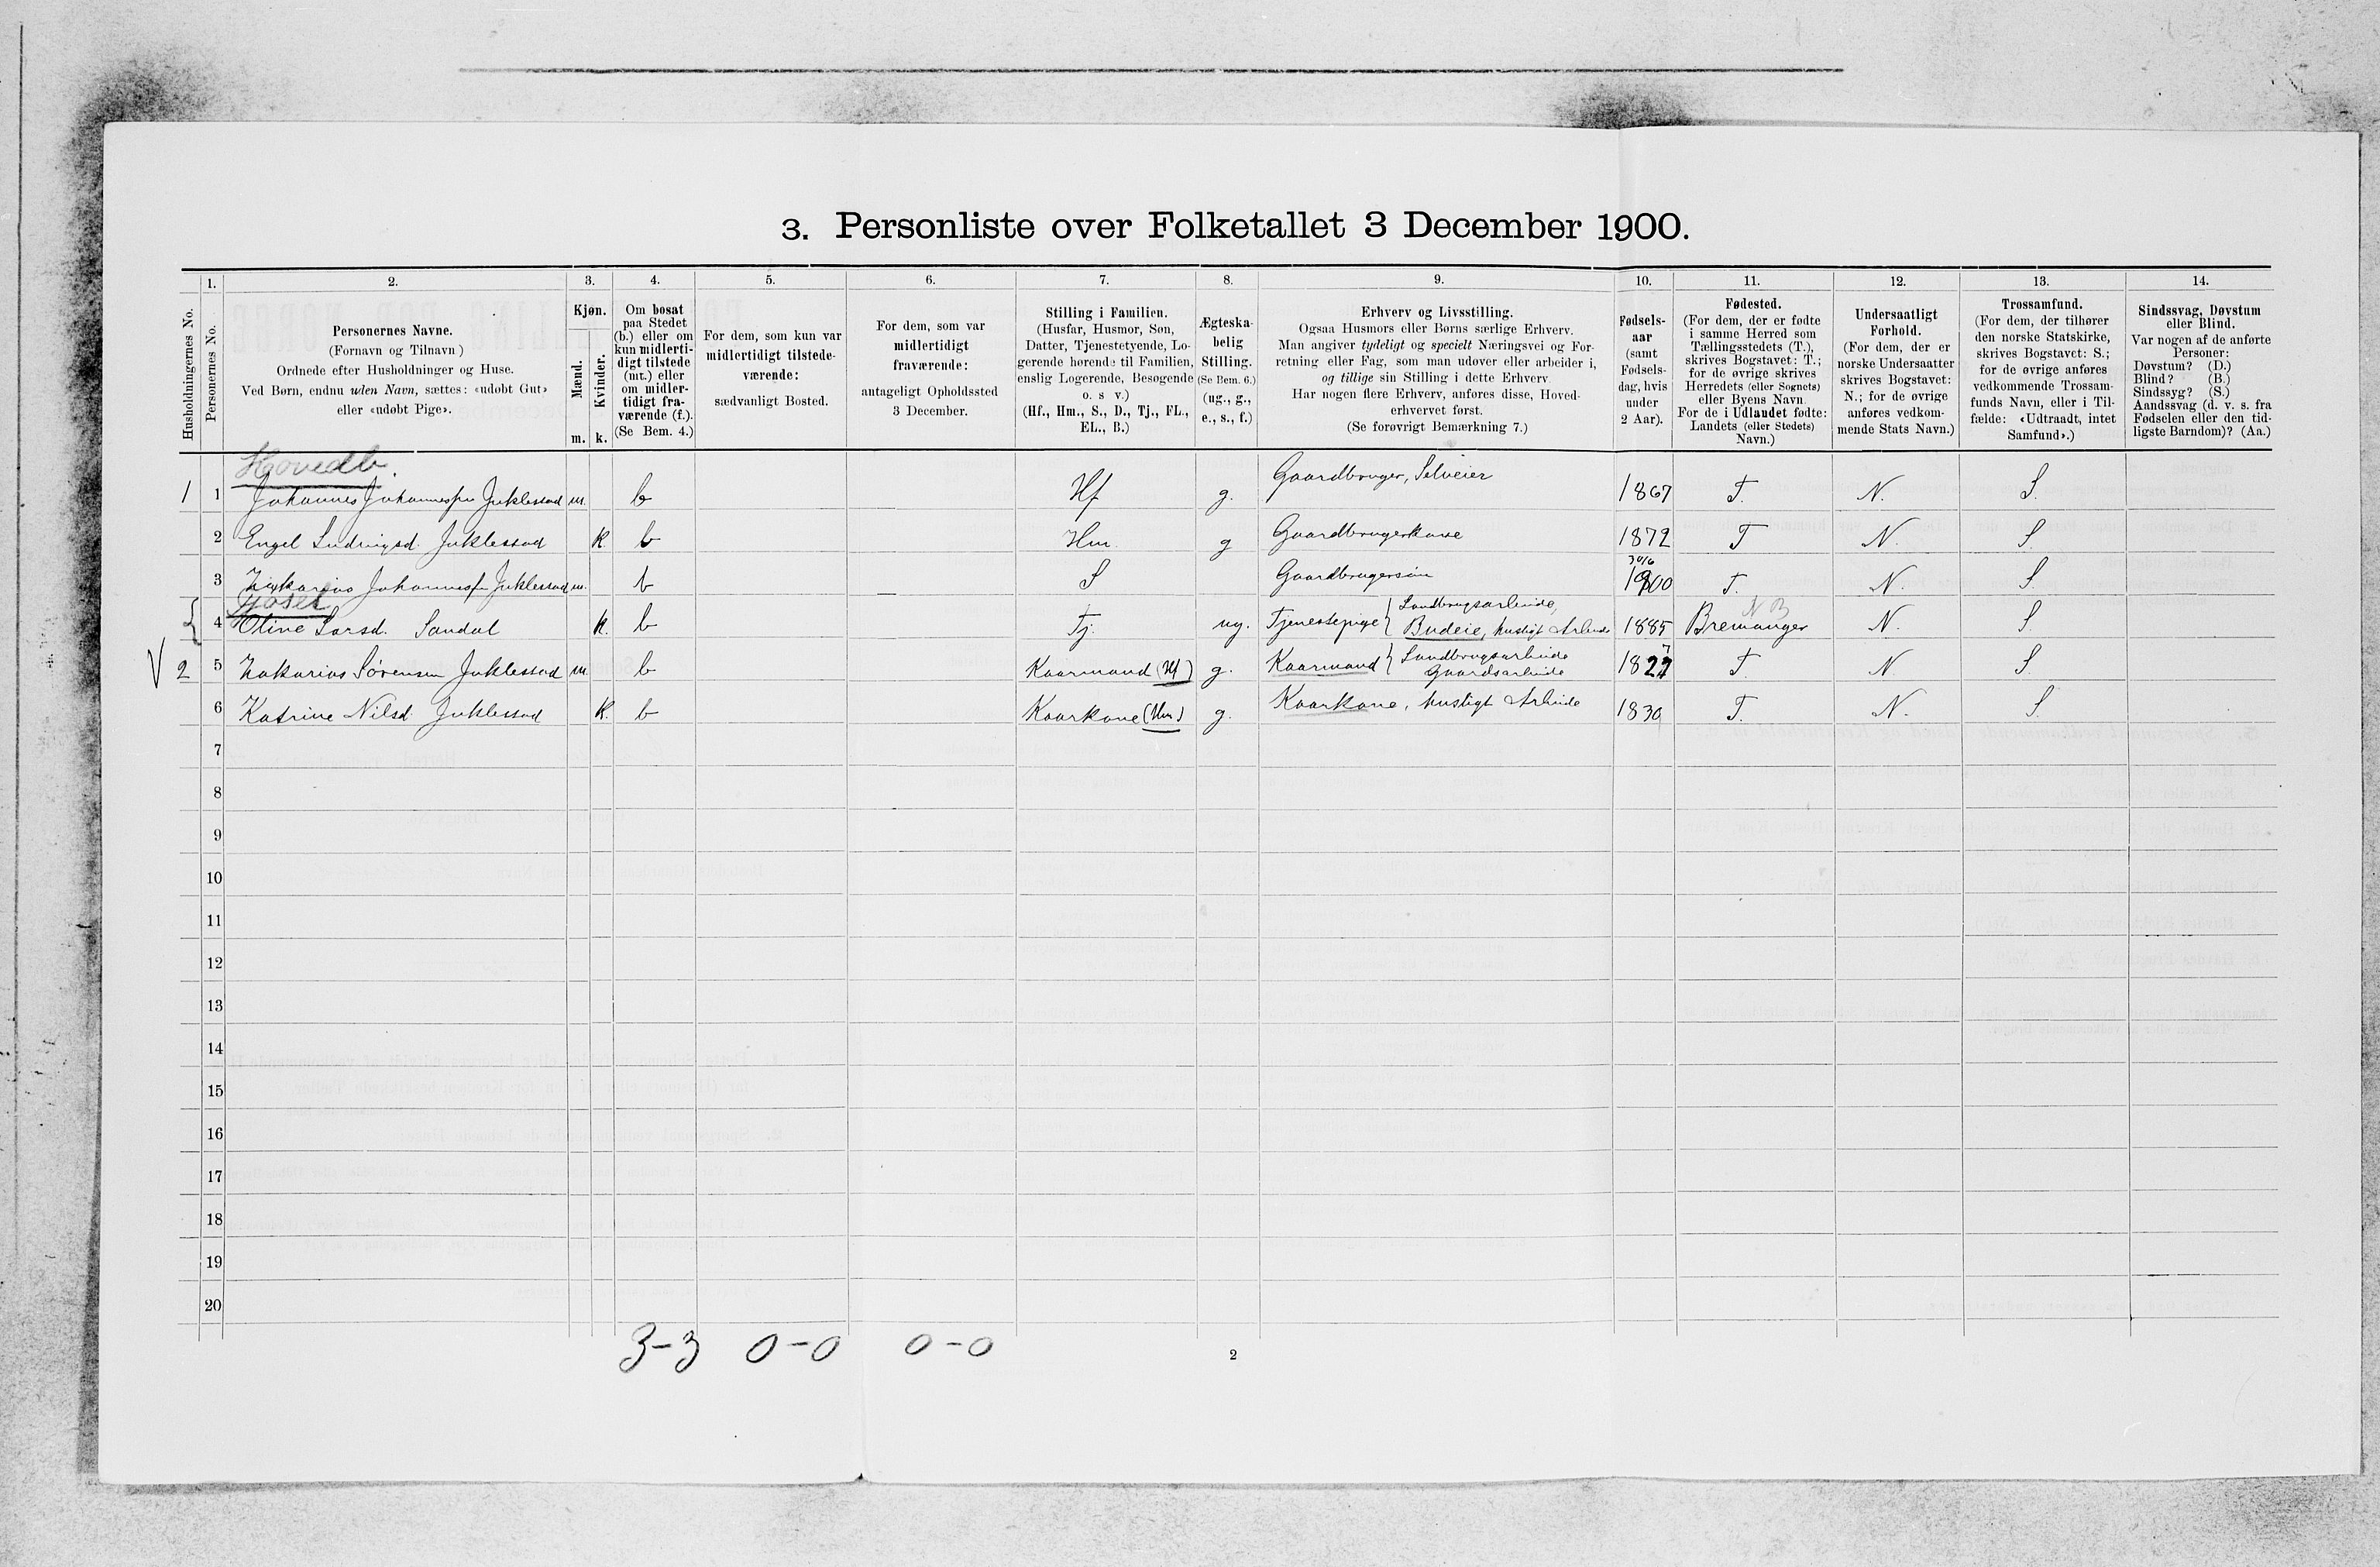 3. Personliste over Folketallet 3 December 1900.
1. 2. 3. 4. 5. 6. 7. 8. 9. 10. 11. 12. 13. 14.
Husholdningernes No.
Personernes No.
Personernes Navne.
(Fornavn og Tilnavn)
Ordnede efter Husholdninger og Huse.
Ved Børn, endnu uden Navn, sættes: «udøbt Gut»
eller «udøbt Pige».
Kjøn.
Mænd.
Kvinder.
m. k.
Om bosat
paa Stedet
(b.) eller om
kun midlerti-
digt tilstede
(mt.) eller
om midler-
tidigt fra-
værende (f.).
(Se Bem. 4.)
For dem, som kun var
midlertidigt tilstede-
værende:
sædvanligt Bosted.
For dem, som var
midlertidigt
fraværende:
antageligt Opholdssted
3 December.
Stilling i Familien.
(Husfar, Husmor, Søn,
Datter, Tjenestetyende, Lo-
gerende hørende til Familien,
enslig Logerende, Besøgende
o. s v.)
(Hf., Hm., S., D., Tj., FL.,
EL., B.)
Ægteska-
belig
Stilling.
(Se Bem. 6.)
(ug., g.,
e., s., f.)
Erhverv og Livsstilling.
Ogsaa Husmors eller Børns særlige Erhverv.
Man angiver tydeligt og specielt Næringsvei og For-
retning eller Fag, som man udøver eller arbeider i,
og tillige sin Stilling i dette Erhverv
Har nogen flere Erhverv, anføres disse, Hoved-
erhvervet først.
(Se forøvrigt Bemærkning 7.)
Fødsels-
aar
(samt
Fødsels-
dag, hvis
under
2 Aar).
Fødested.
(For dem, der er fødte
i samme Herred som
Tællingsstedets (T.),
skrives Bogstavet: T.;
for de øvrige skrives
Herredets (eller Sognets)
eller Byens Navn
For de i Udlandet fødte:
Landets (eller Stedets)
Navn.)
Undersaatligt
Forhold.
(For dem, der er
norske Undersaatter
skrives Bogstavet:
N.; for de øvrige
anføres vedkom-
mende Stats Navn.)
Trossamfund.
(For dem, der tilhører
den norske Statskirke,
skrives Bogstavet: S.;
for de øvrige anføres
vedkommende Trossam-
funds Navn, eller i Til-
fælde: «Udtraadt, intet
Samfund».)
Sindssvag, Døvstum
eller Blind.
Var nogen af de anførte
Personer:
Døvstum? (D.)
Blind? (B.)
Sindssyg? (S.)
Aandssvag (d. v. s. fra
Fødselen eller den tid-
ligste Barndom)? (Aa.)
Hovedb.
1 1 Johannes Johannesen Juklestad m. b Hf g. Gaardbruger, Selveier 1867 T. N. S.
2 Engel Ludvigsd. Juklestad k. b Hm g Gaardbrugerkone 1872 T N. S
30/6
3 Zakarias Johannesen Juklestad m. b S Gaardbrugersøn 1900 T. N. S
N B
Landbrugsarbeide,
4 Oline Larsd. Sandal k. b Tj. ug. Tjenestepige Budeie, husligt Arbeide 1885 Bremanger N. S
V 2 5 Zakarias Sørensen Juklestad m. b Kaarmand (Hf) g. Kaarmand Landbrugsarbeide T. N. S.
Gaardsarbeide
6 Katrine Nilsd. Juklestad k. b Kaarkone (Hm) g. Kaarkone, husligt Arbeide 1830 T. N. S.
7
8
9
10
11
12
13
14
15
16
17
18
19
20
3-3 0-0 0-0
2